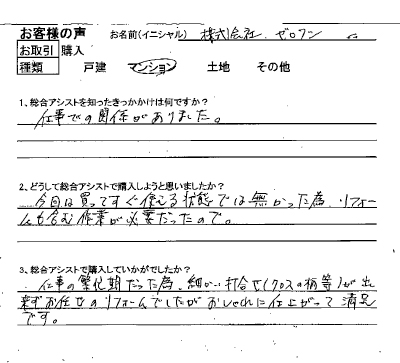 お客様の声 お名前(イニシャル) 株式会社 ゼロワン
お取引 購入
種類 戸建 マンション 土地 その他
1、総合アシストを知ったきっかかけは何ですか?
仕事での関係がありました。
2、どうして総合アシストで購入しようと思いましたか?
今回は買ってすぐ使える状態では無かった為、リフォー
ムも含む作業が必要だったので。
3、総合アシストで購入していかがでしたか?
仕事の繁忙期だった為、細かい打合せ(クロスの柄等)が出
来ずお任せのリフォームでしたがおしゃれに仕上がって満足
です。